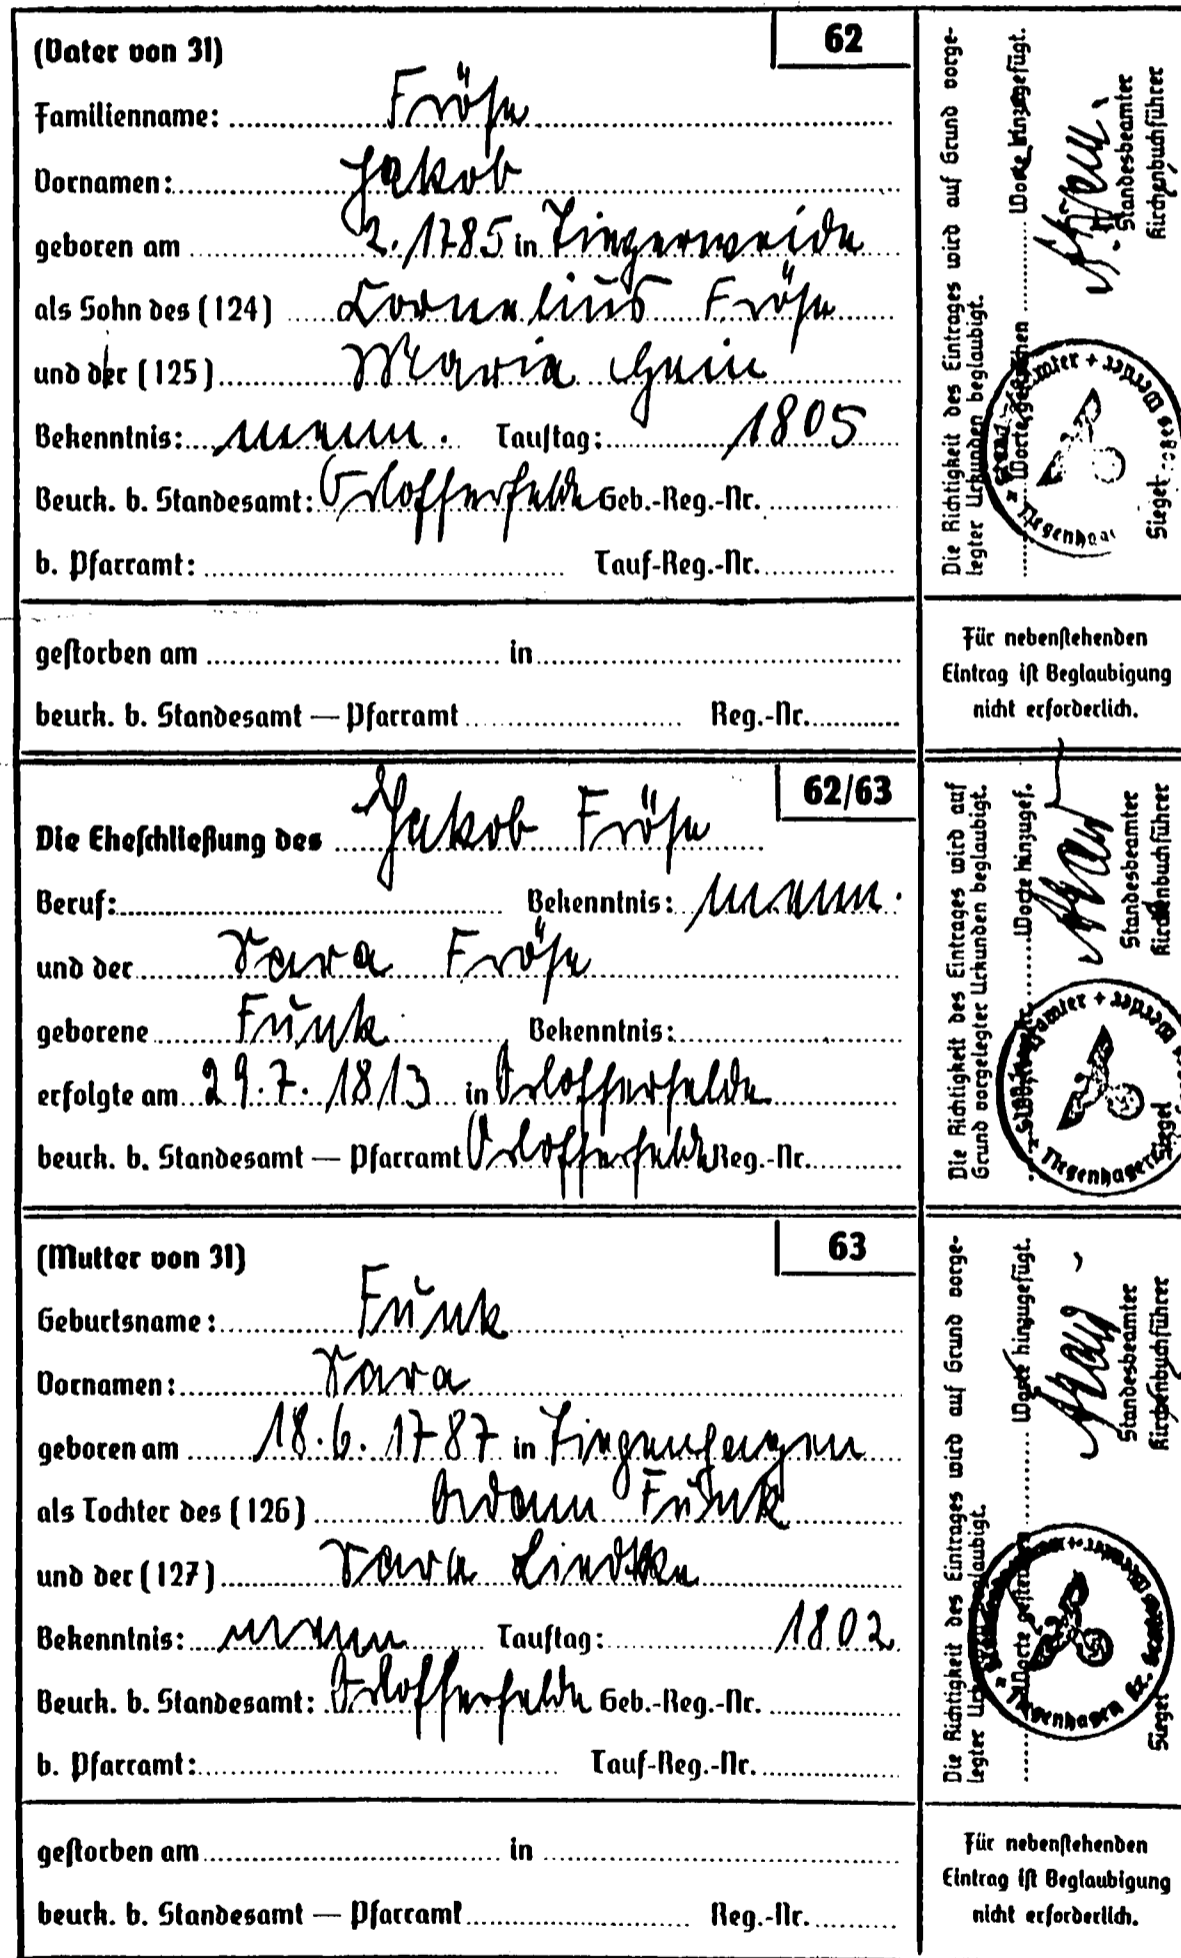 (Vater von 31) 62
Familienname: Fröse
Vornamen: Jakob
geboren am 2. 1785 in Tiegerweide
als Sohn des (124) Cornelius Fröse
und der (125) Maria Hein
Bekenntnis: menn. Tauftag: 1805
Beurk. b. Standesamt: Orlofferfelde Geb.-Reg.-Nr.
b. Pfarramt: Tauf-Reg.-Nr.
gestorben am in
beurk. b. Standesamt — Pfarramt Reg.-Nr.
Die Richtigkeit des Eintrages wird auf Grund vorge-
legter Urkunden beglaubigt.
Worte gestrichen Worte hinzugefügt.
Standesbeamter
Kirchenbuchführer
Siegel
Tiegenhagen
Für nebenstehenden
Eintrag ist Beglaubigung
nicht erforderlich.
62/63
Die Eheschließung des Jakob Fröse
Beruf: Bekenntnis: menn.
und der Sara Fröse
geborene Funk Bekenntnis:
erfolgte am 29.7.1813 in Orlofferfelde
beurk. b. Standesamt — Pfarramt Orlofferfelde Reg.-Nr.
Die Richtigkeit des Eintrages wird auf
Grund vorgelegter Urkunden beglaubigt.
Worte hinzugef.
Standesbeamter
Kirchenbuchführer
Siegel
Tiegenhagen
(Mutter von 31) 63
Geburtsname: Funk
Vornamen: Sara
geboren am 18.6.1787 in Tiegenhagen
als Tochter des (126) Adam Funk
und der (127) Sara
Bekenntnis: menn Tauftag: 1802
Beurk. b. Standesamt: Orlofferfelde Geb.-Reg.-Nr.
b. Pfarramt: Tauf-Reg.-Nr.
gestorben am in
beurk. b. Standesamt — Pfarramt Reg.-Nr.
Die Richtigkeit des Eintrages wird auf Grund vorge-
legter Urkunden beglaubigt.
Worte gestrichen Worte hinzugefügt.
Standesbeamter
Kirchenbuchführer
Siegel
Tiegenhagen
Für nebenstehenden
Eintrag ist Beglaubigung
nicht erforderlich.